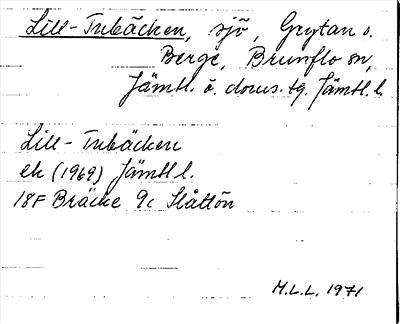 Lill-Tubäcken, sjö, Grytan o.
Berge, Brunflo sn,
Jämtl. ö. doms. tg. Jämtl. l.
Lill-Tubäcken
ek (1969) Jämtl l.
18F Bräcke 9c Slåttön
M.L.L. 1971